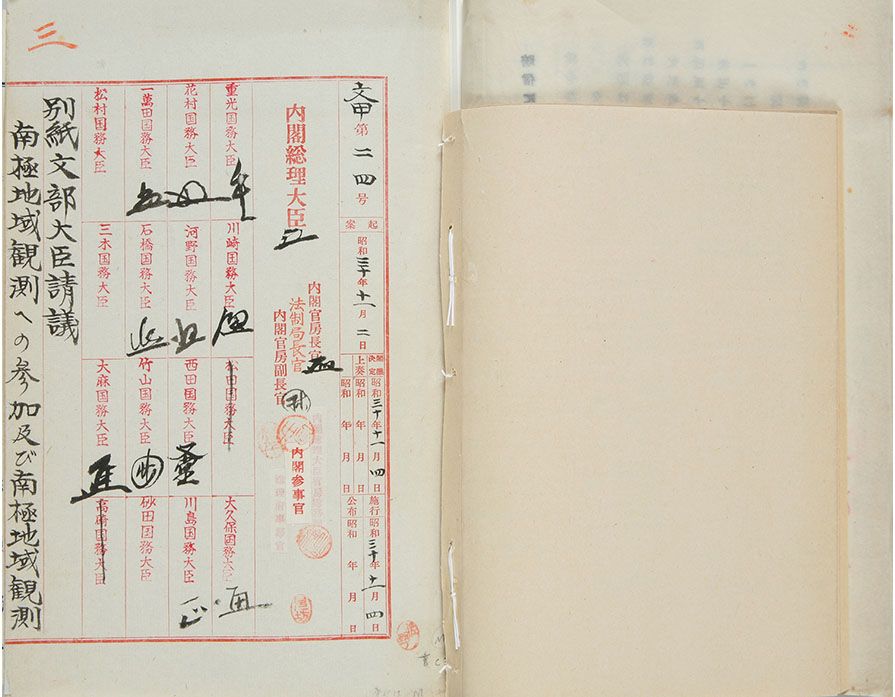 三
文甲第二四号
起案 昭和三十年十一月二日
閣議決定 昭和三十年十一月四日
上奏 昭和 年 月 日
施行 昭和三十年十一月四日
公布 昭和 年 月 日
内閣総理大臣
内閣官房長官
法制局長官
内閣官房副長官
内閣参事官
重光国務大臣
川崎国務大臣
松田国務大臣
大久保国務大臣
花村国務大臣
河野国務大臣
西田国務大臣
川島国務大臣
一萬田国務大臣
石橋国務大臣
竹山国務大臣
砂田国務大臣
松村国務大臣
三木国務大臣
大麻国務大臣
高碕国務大臣
別紙文部大臣請議
南極地域観測への参加及び南極地域観測